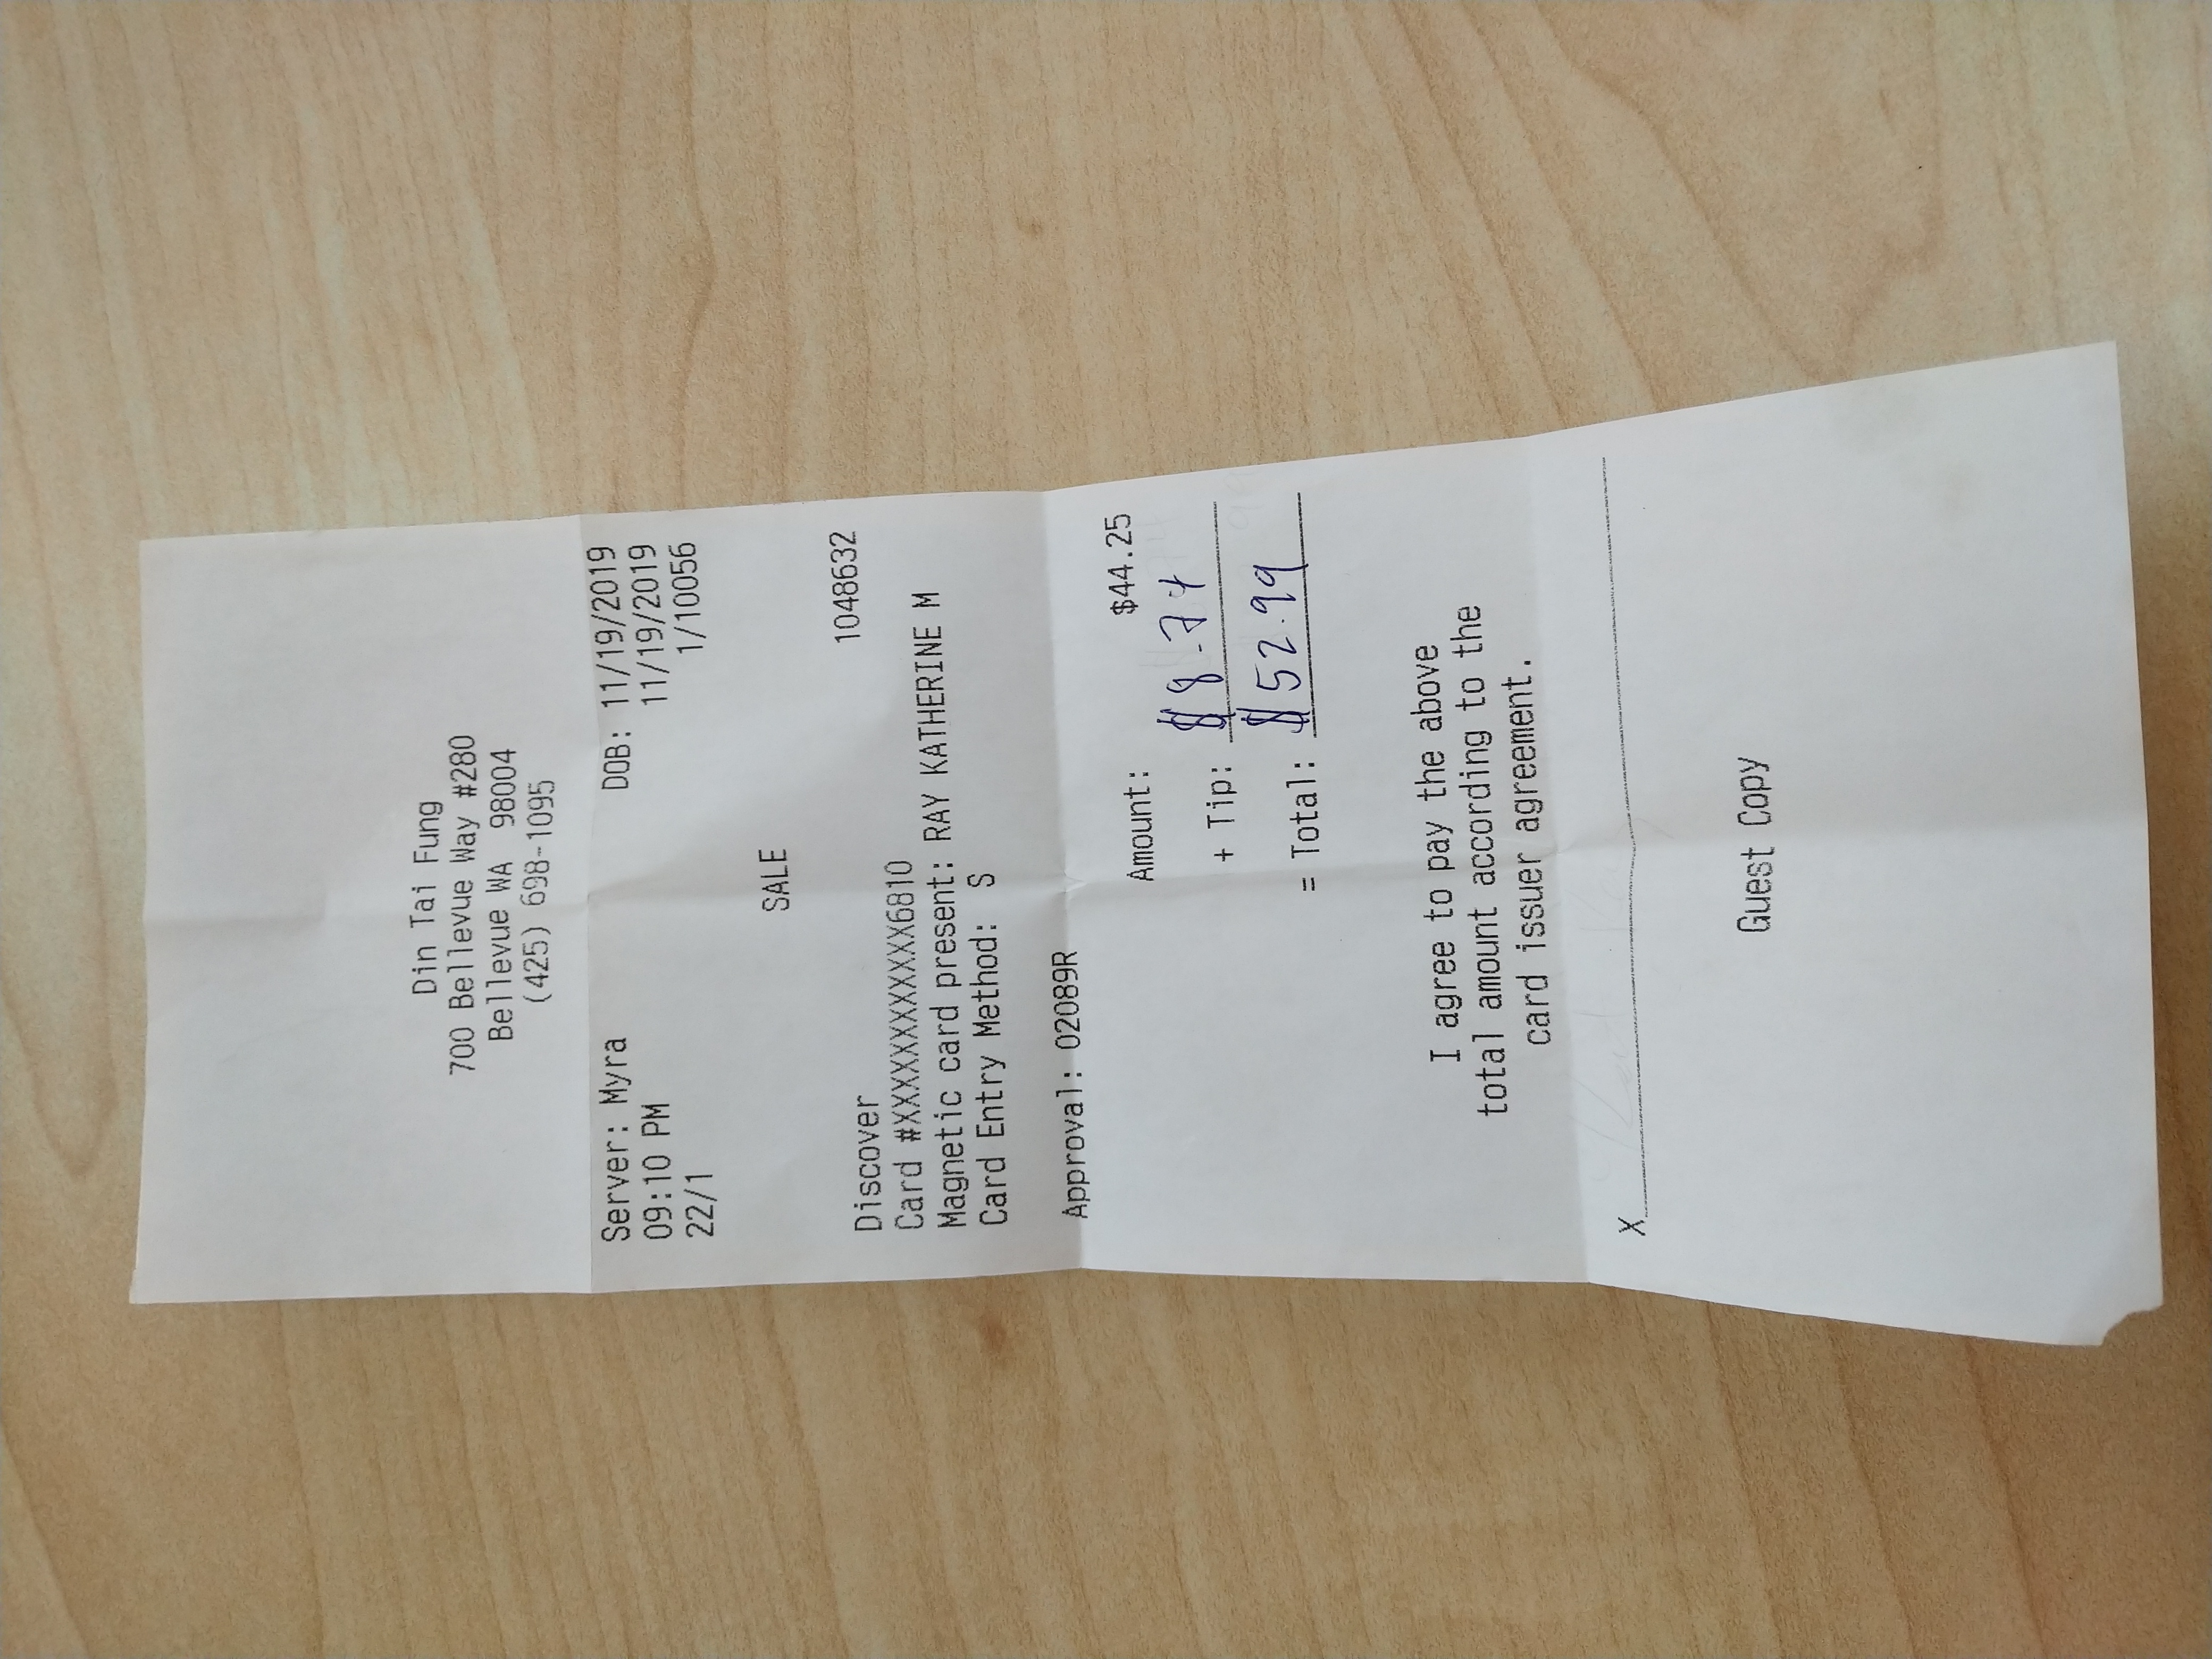 Din Tai Fung
700 Bellevue Way #280
Bellevue WA 98004
(425) 698-1095
Server: Myra DOB: 11/19/2019
09:10 PM 11/19/2019
22/1 1/10056
SALE
Discover 1048632
Card #XXXXXXXXXXXX6810
Magnetic card present: RAY KATHERINE M
Card Entry Method: S
Approval: 02089R
Amount: $44.25
+ Tip: $8.74
= Total: $52.99
I agree to pay the above
total amount according to the
card issuer agreement.
X
Guest Copy